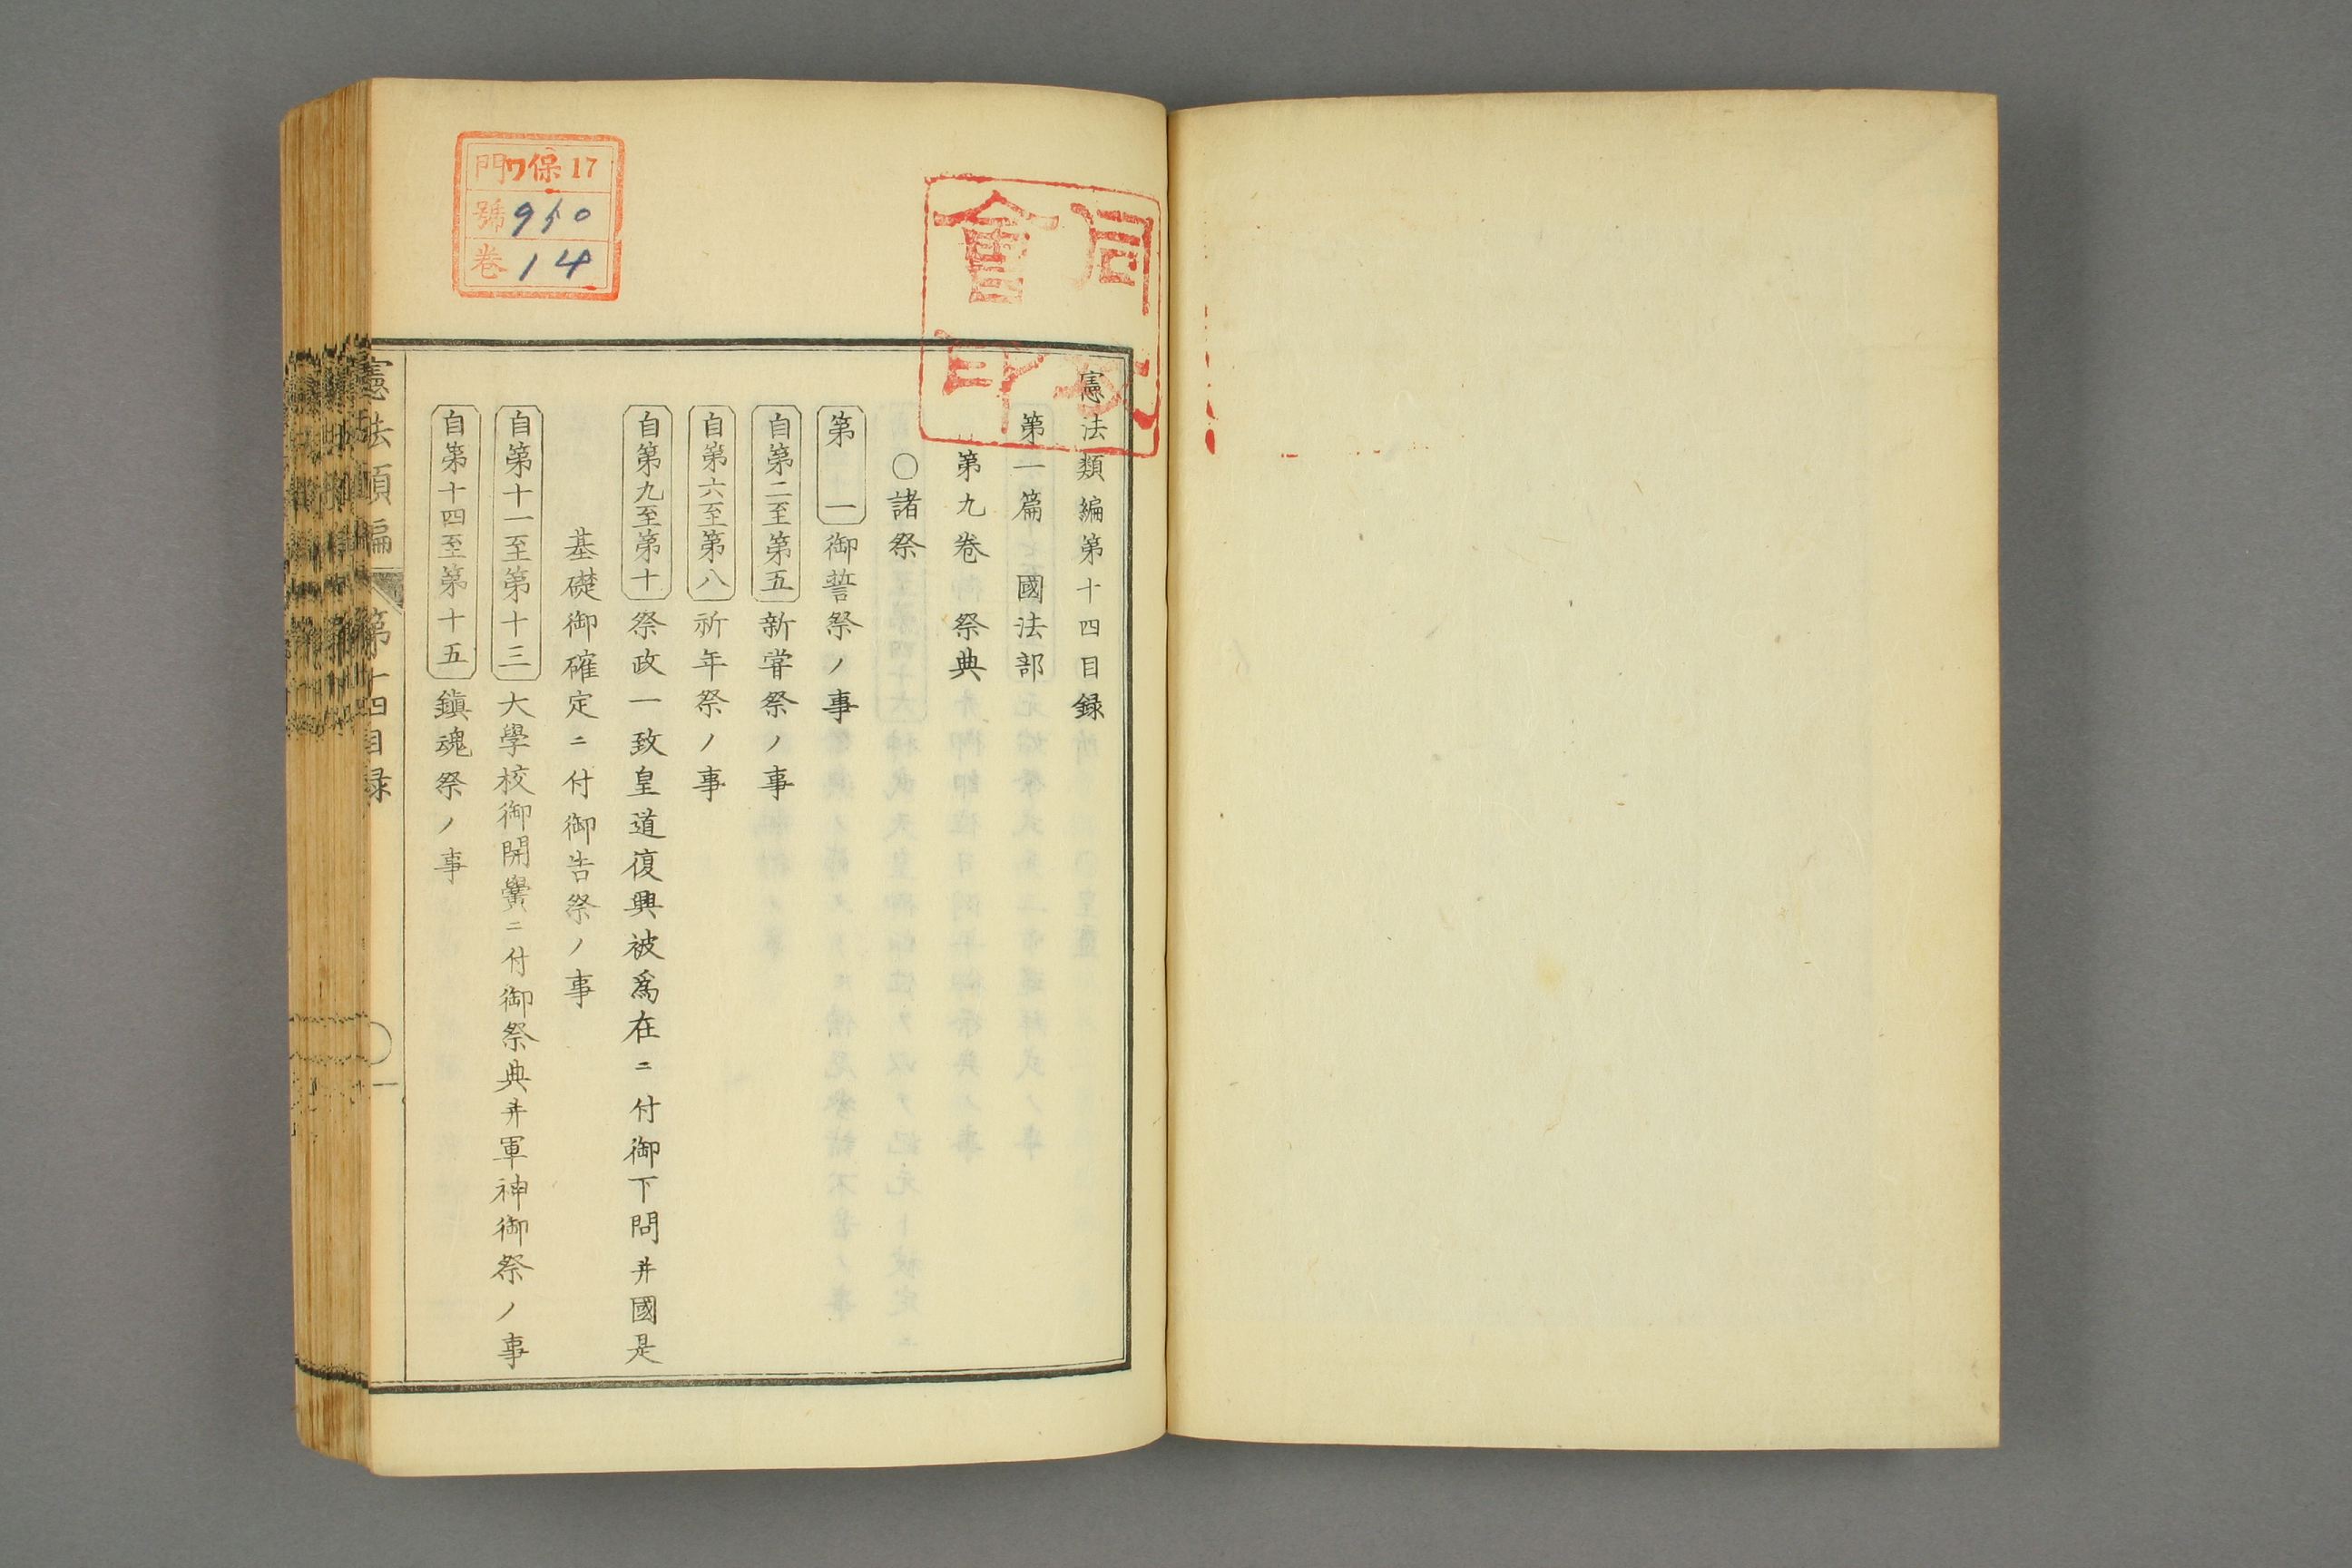 憲法類編第十四目録
第一篇　國法部
第九卷　祭典
〇諸祭
第一　御誓祭ノ事
自第二至第五　新甞祭ノ事
自第六至第八　祈年祭ノ事
自第九至第十　祭政一致皇道復興被爲在ニ付御下問并國是
基礎御確定ニ付御告祭ノ事
自第十一至第十三　大學校御開黌ニ付御祭典并軍神御祭ノ事
自第十四至第十五　鎭魂祭ノ事
憲法類編　第十四目録　一
門ワ保17
號950
卷14
會印